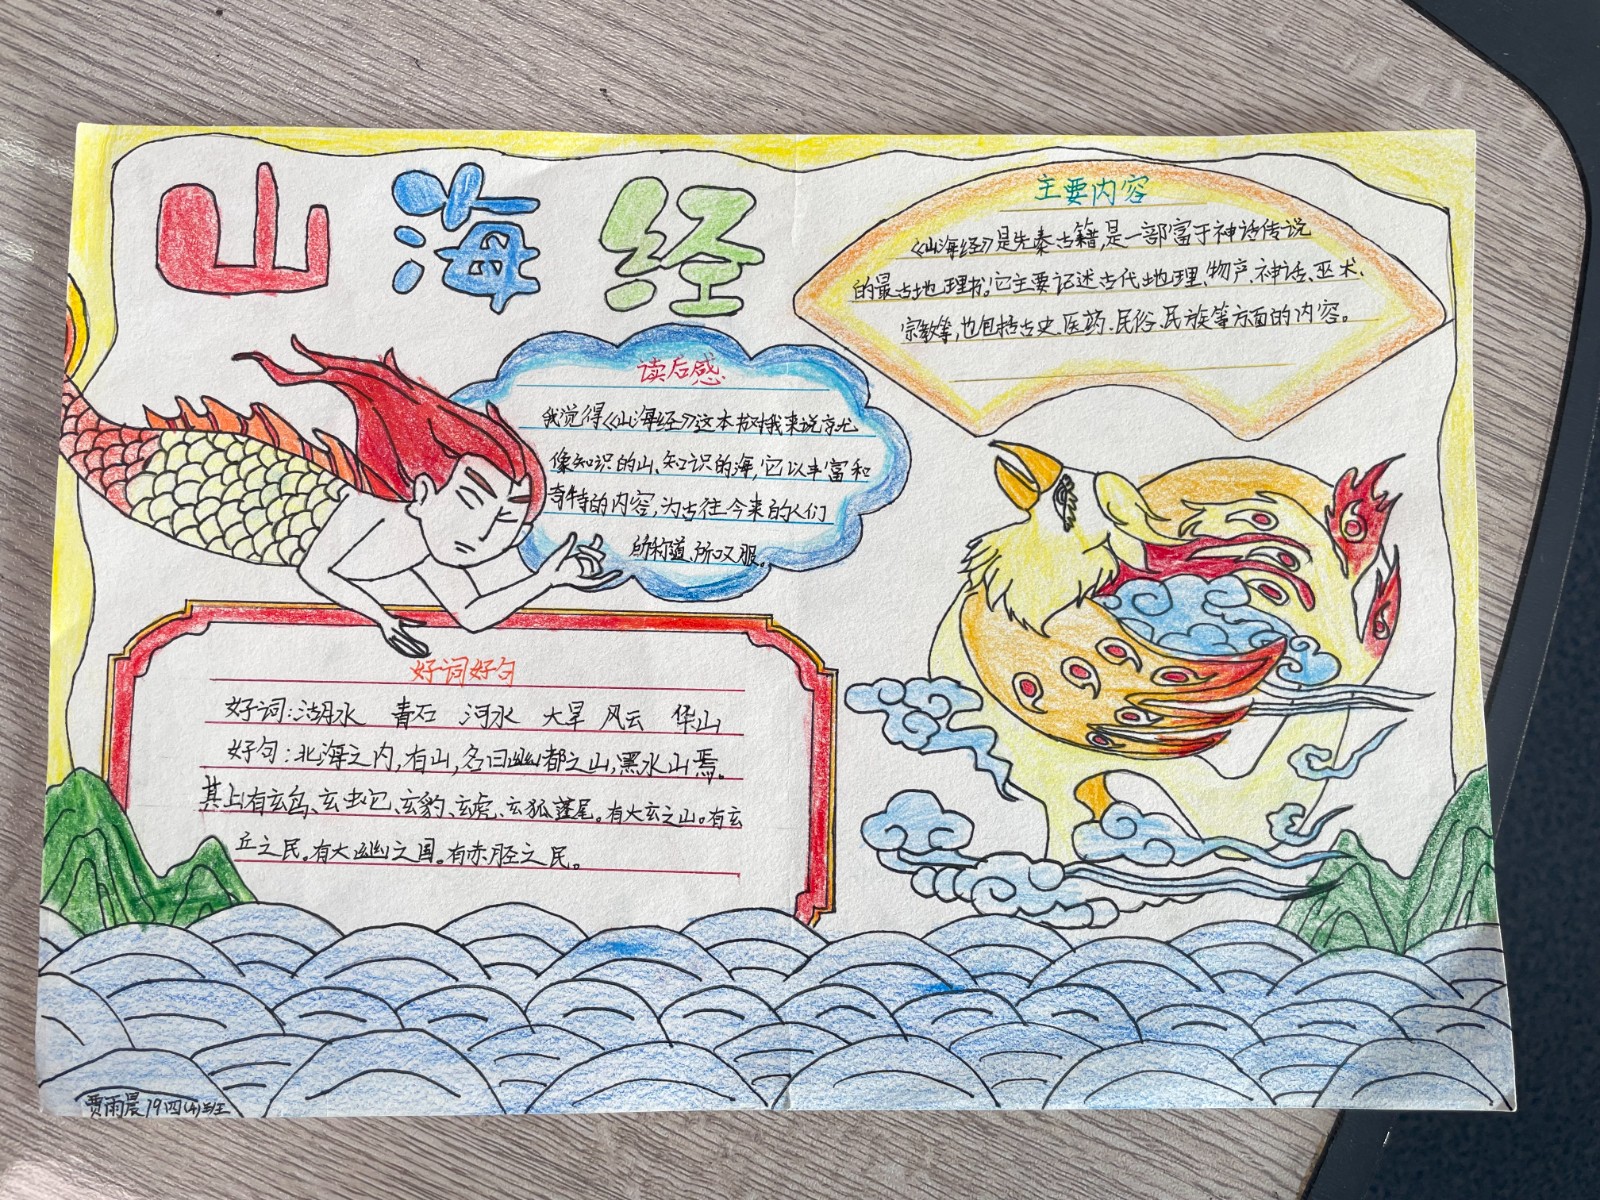 山海经
主要内容
《山海经》是先秦古籍,是一部富于神话传说
的最古地理书。它主要记述古代地理、物产、神话、巫术、
宗教等,也包括古史、医药、民俗、民族等方面的内容。
读后感
我觉得《山海经》这本书对我来说京尤
像知识的山、知识的海,它以丰富和
奇特的内容,为古往今来的人们
所称道、所叹服。
好词好句
好词:湖水 青石 河水 大旱 风云 华山
好句:北海之内,有山,名曰幽都之山,黑水山焉。
其上有玄鸟、玄蛇、玄豹、玄虎、玄狐蓬尾。有大玄之山。有玄
丘之民。有大幽之国。有赤胫之民。
贾雨晨 19 四(4)班